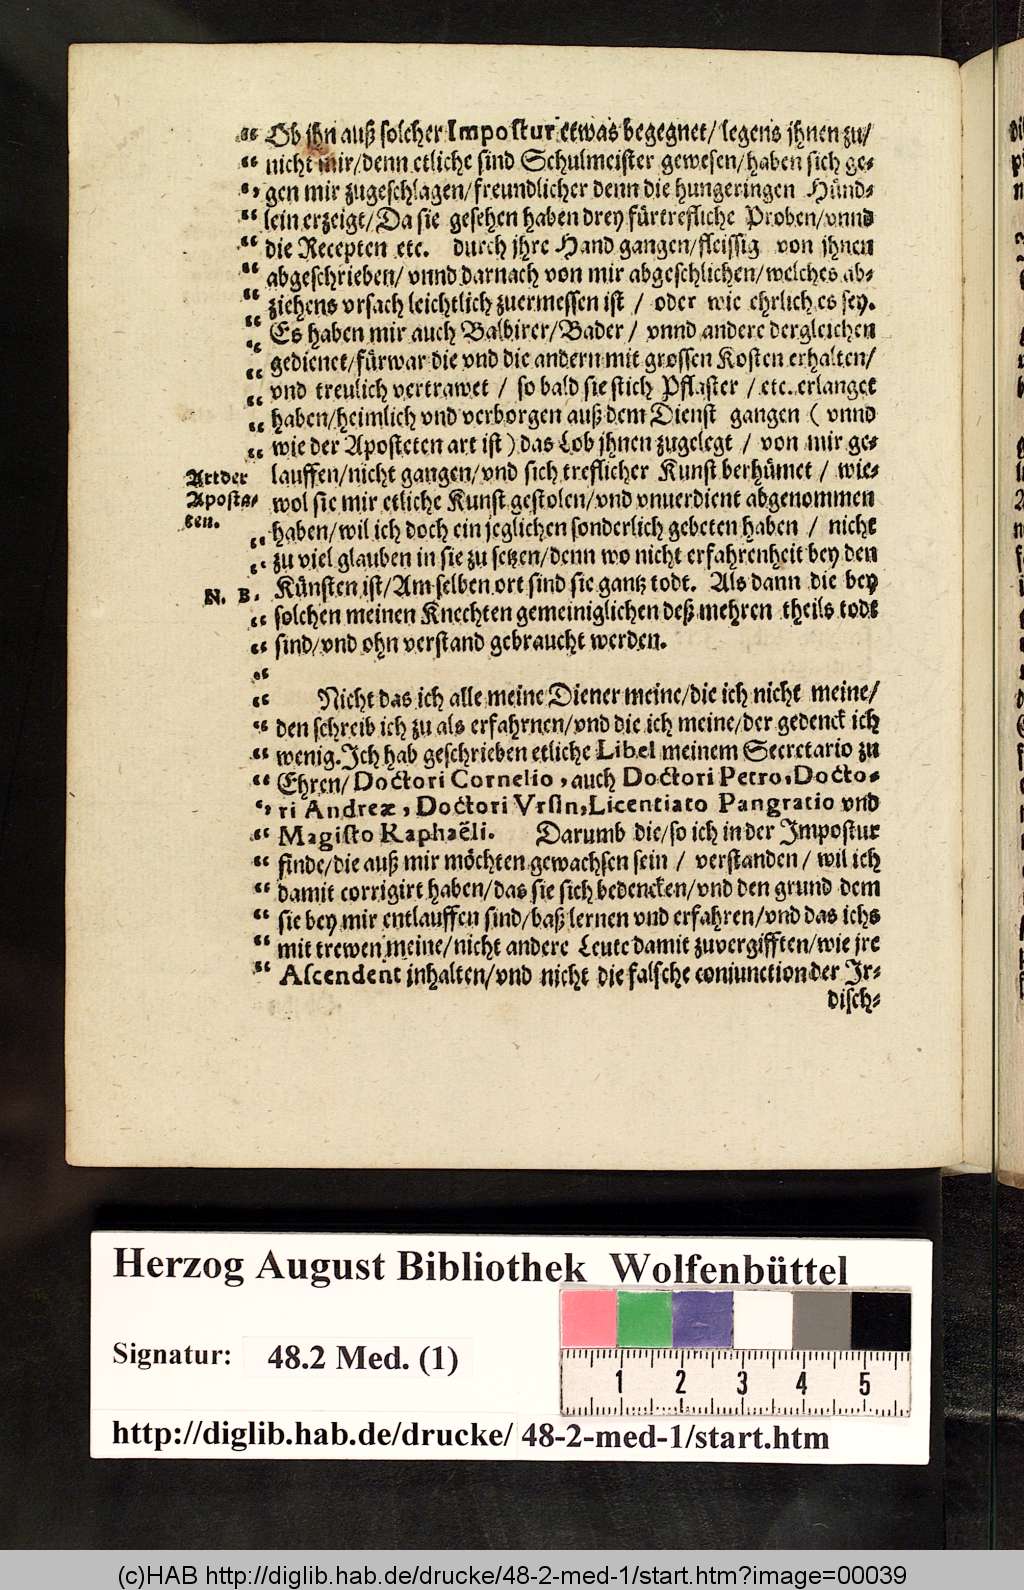 Ob jhn auß solcher Impostur etwas begegnet/ legens jhnen zu/
nicht mir/ denn etliche sind Schulmeister gewesen/ haben sich ge-
gen mir zugeschlagen/ freundlicher denn die hungeringen Hünd-
lein erzeigt/ Da sie gesehen haben drey fürtrefliche Proben/ vnnd
die Recepten etc. durch jhre Hand gangen/ fleissig von jhnen
abgeschrieben/ vnnd darnach von mir abgeschlichen/ welches ab-
ziehens vrsach leichtlich zuermessen ist / oder wie ehrlich es sey.
Es haben mir auch Balbirer/ Bader / vnnd andere dergleichen
gedienet/ fürwar die vnd die andern mit grossen Kosten erhalten/
vnd treulich vertrawet / so bald sie stich Pflaster / etc. erlanget
haben/ heimlich vnd verborgen auß dem Dienst gangen ( vnnd
wie der Aposteten art ist ) das Lob jhnen zugelegt / von mir ge-
Art der
Aposta-
ten.
lauffen/ nicht gangen/ vnd sich treflicher Kunst berhümet / wie-
wol sie mir etliche Kunst gestolen/ vnd vnuerdient abgenommen
haben/ wil ich doch ein jeglichen sonderlich gebeten haben / nicht
zu viel glauben in sie zu setzen/ denn wo nicht erfahrenheit bey den
N. B.
Künsten ist/ Am selben ort sind sie gantz todt. Als dann die bey
solchen meinen Knechten gemeiniglichen deß mehren theils todt
sind/ vnd ohn verstand gebraucht werden.
Nicht das ich alle meine Diener meine/ die ich nicht meine/
den schreib ich zu als erfahrnen/ vnd die ich meine/ der gedenck ich
wenig. Ich hab geschrieben etliche Libel meinem Secretario zu
Ehren/ Doctori Cornelio, auch Doctori Petro, Docto-
ri Andreæ, Doctori Vrsin, Licentiato Pangratio vnd
Magisto Raphaëli. Darumb die/ so ich in der Impostur
finde/ die auß mir möchten gewachsen sein / verstanden / wil ich
damit corrigirt haben/ das sie sich bedencken/ vnd den grund dem
sie bey mir entlauffen sind/ baß lernen vnd erfahren/ vnd das ichs
mit trewen meine/ nicht andere Leute damit zuvergifften/ wie jre
Ascendent inhalten/ vnd nicht die falsche coniunction der Ir-
disch-
Herzog August Bibliothek Wolfenbüttel
Signatur: 48.2 Med. (1)
1 2 3 4 5
http://diglib.hab.de/drucke/ 48-2-med-1/start.htm
(c)HAB http://diglib.hab.de/drucke/48-2-med-1/start.htm?image=00039